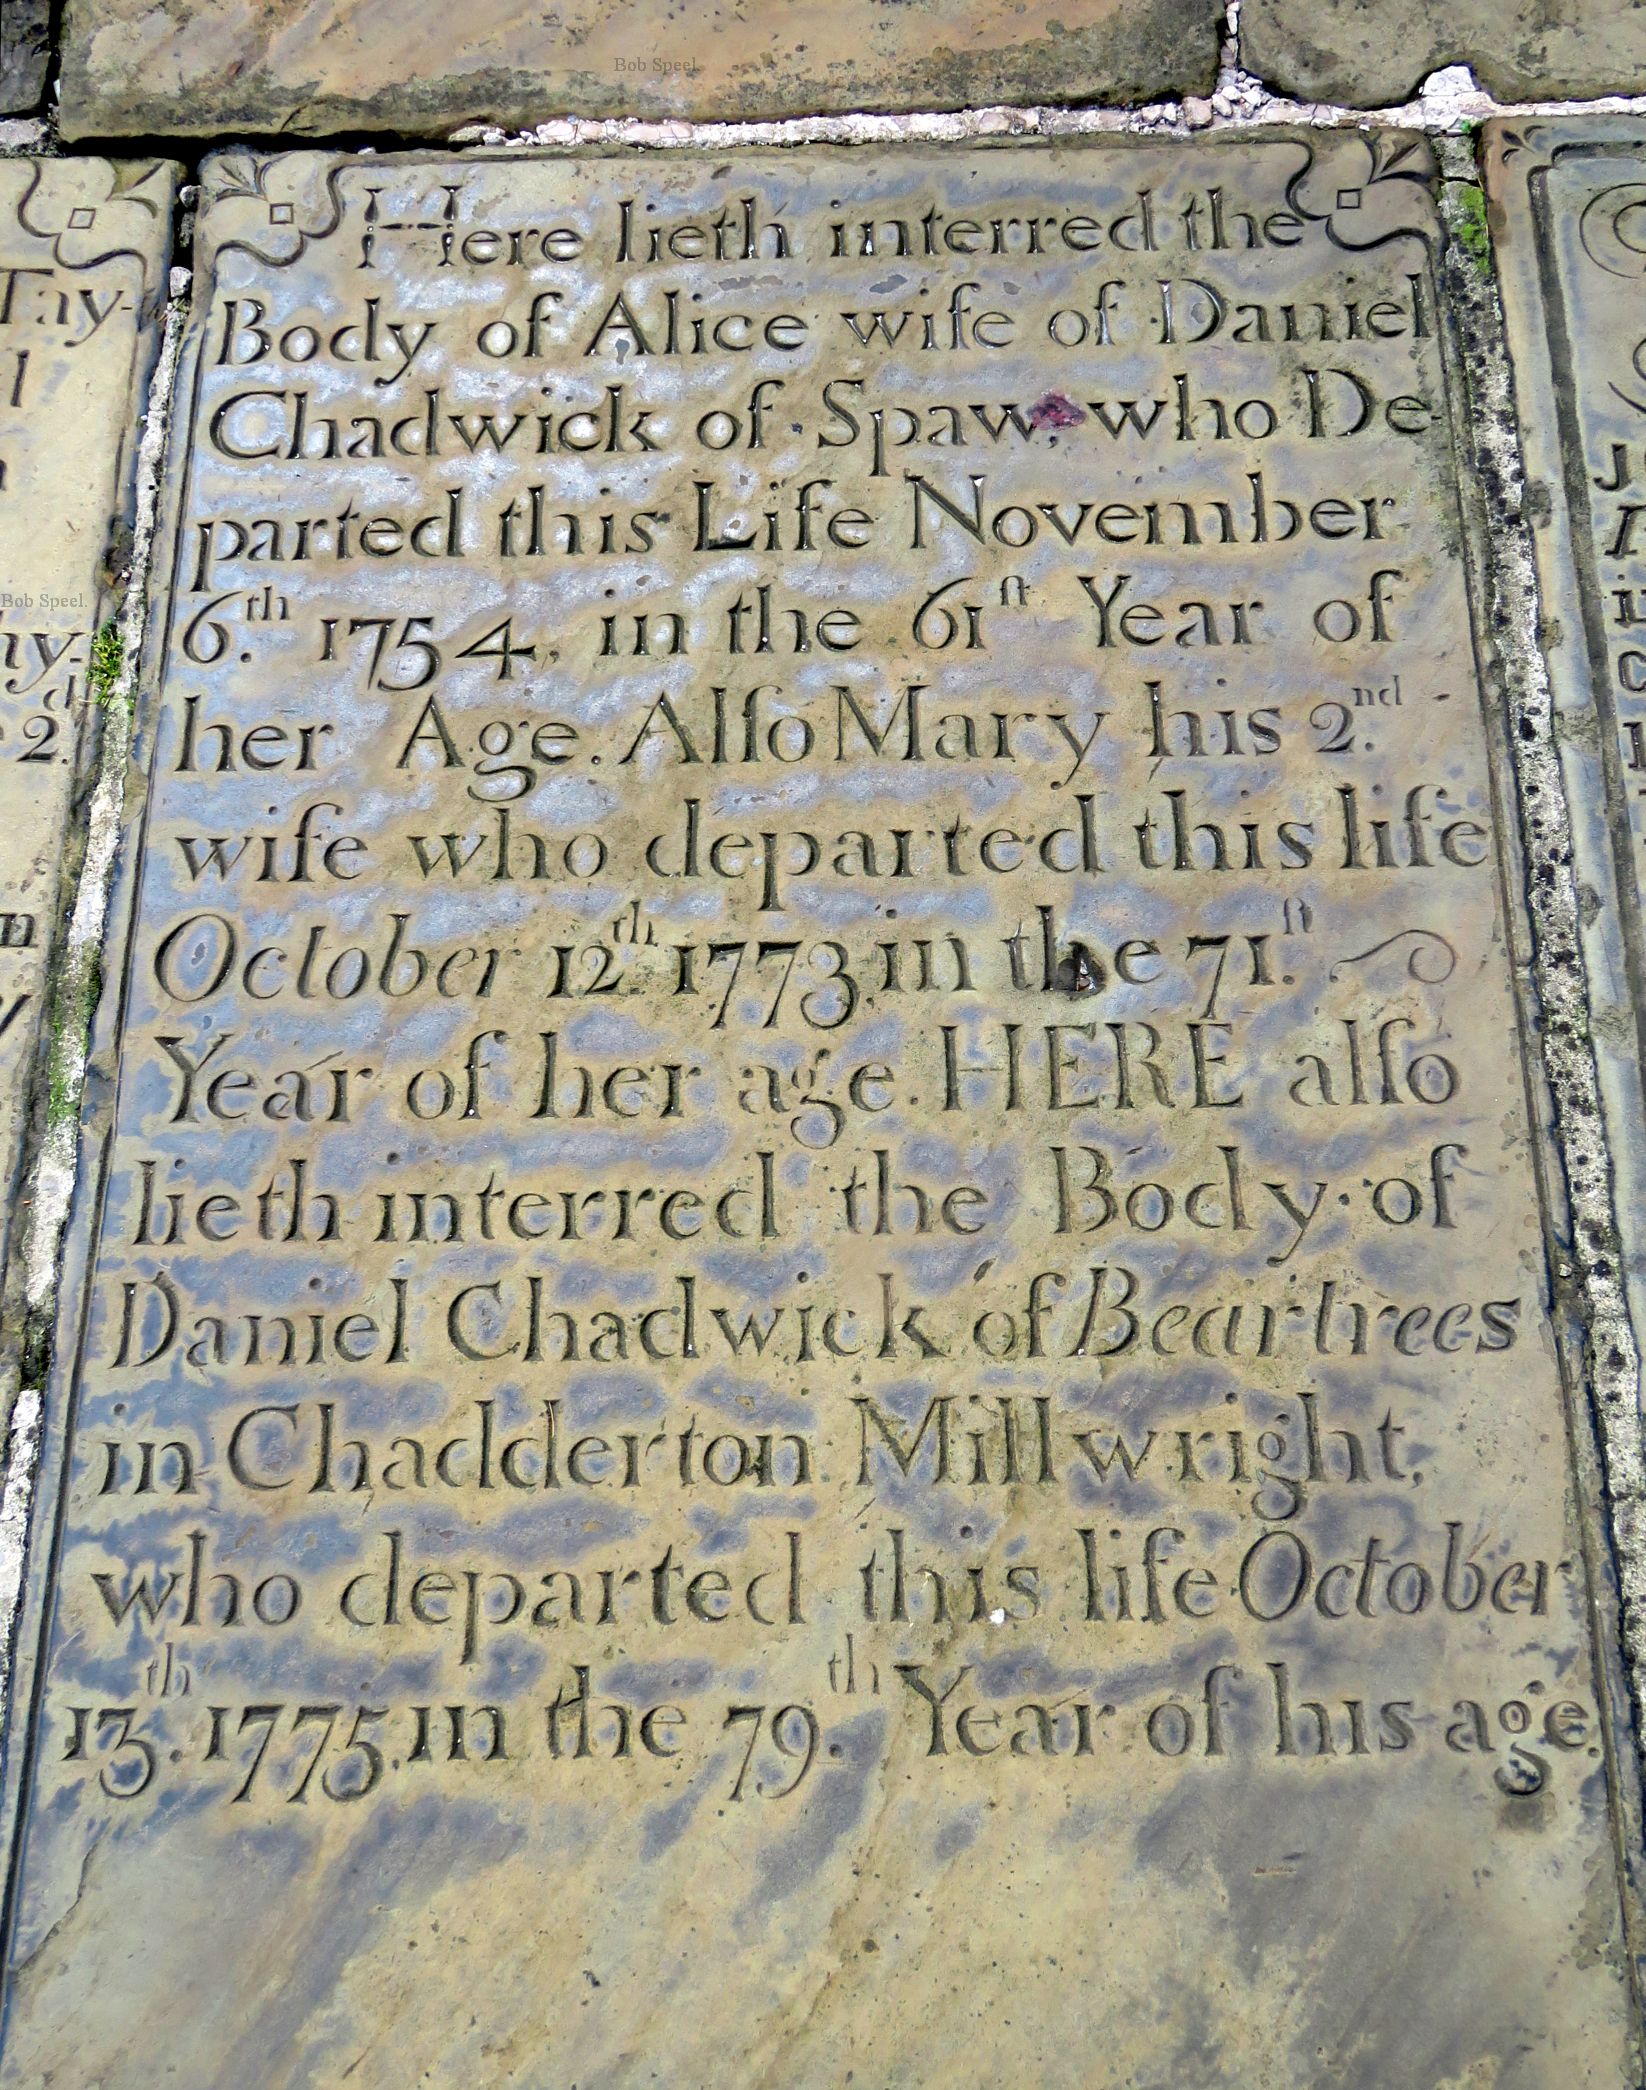 Bob Speel.
Here lieth interred the
Body of Alice wife of Daniel
Chadwick of Spaw, who De-
parted this Life November
6.th 1754, in the 61st Year of
her Age. Alſo Mary his 2.nd
wife who departed this life
October 12.th 1773 in the 71.st
Year of her age. HERE alſo
lieth interred the Body of
Daniel Chadwick of Beartrees
in Chadderton Millwright,
who departed this life October
13.th 1775 in the 79.th Year of his age.
Tay-
Bob Speel.
hy-
2.d